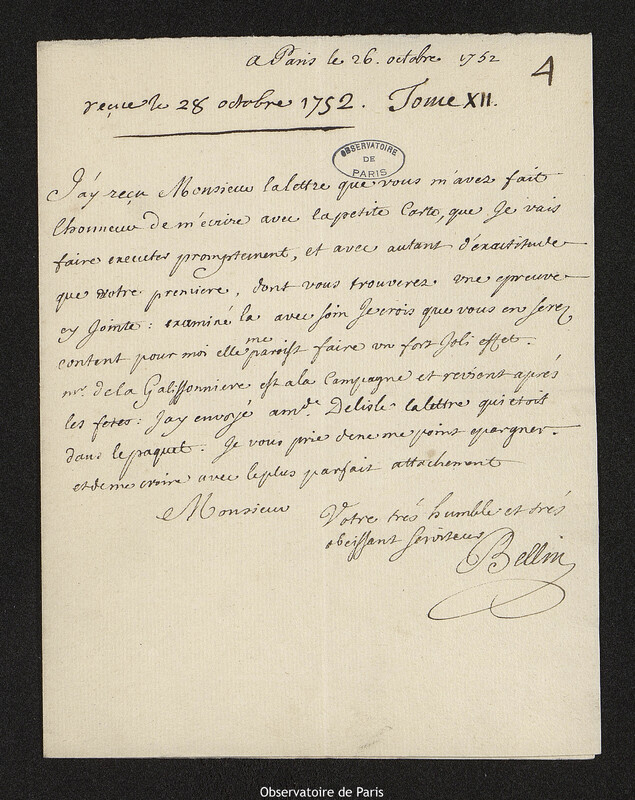 a Paris le 26. octobre 1752
4
reçue le 28 octobre 1752. Tome XII.
OBSERVATOIRE
DE
PARIS
J'ay reçu Monsieur la lettre que vous m'avez fait
lhonneur de m'écrire avec la petite Carte, que Je vais
faire executer promptement, et avec autant d'exactitude
que votre premiere, dont vous trouverez une epreuve
cy Jointe: examiné la avec soin Je crois que vous en serez
content pour moi elle me paroist faire un fort Joli effet.
mr. de la Galissonniere est a la Campagne et revient aprés
les fetes: J'ay envoyé a mr. de Delisle la lettre qui etoit
dans le paquet. Je vous prie de ne me point epargner.
et de me croire avec le plus parfait attachement
Monsieur
Votre trés humble et trés
obeissant serviteur
Bellin
Observatoire de Paris